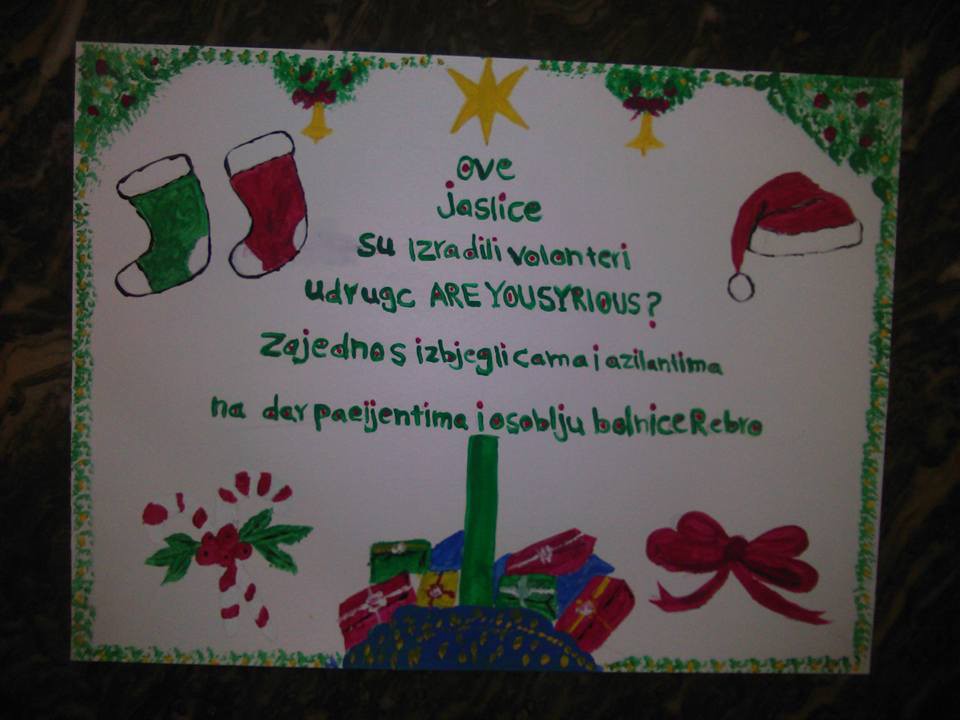 ove
jaslice
su Izradili volonteri
udrugc ARE YOUSYRIOUS?
Zajedno s izbjeglicama i azilantima
na dar pacijentima i osoblju bolnice Rebro